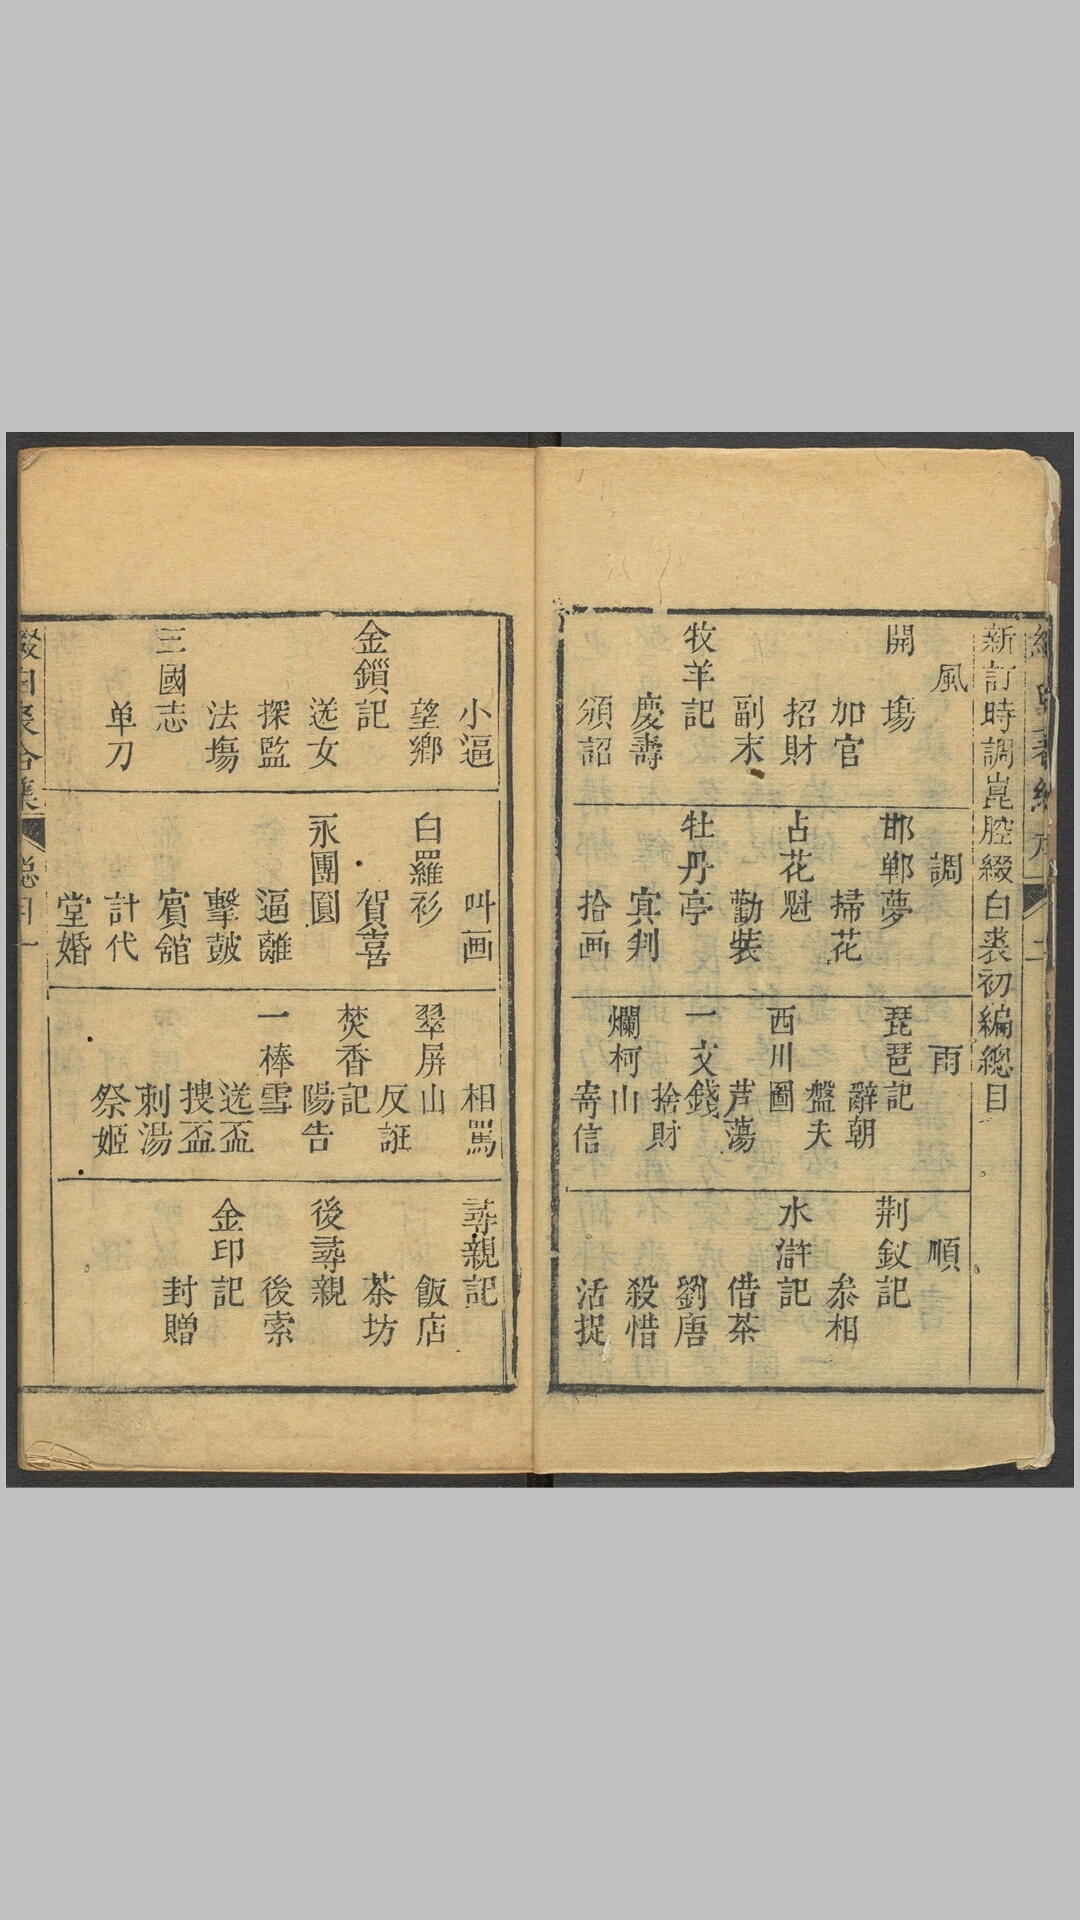 新訂時調崑腔綴白裘初編總目
風
開塲
加官
招財
副末
牧羊記
慶壽
頒詔
調
邯鄲夢
掃花
占花魁
勸裝
牡丹亭
冥判
拾画
雨
琵琶記
辭朝
盤夫
西川圖
芦蕩
一文錢
捨財
爛柯山
寄信
順
荆釵記
叅相
水滸記
借茶
劉唐
殺惜
活捉
小逼
望鄉
金鎖記
送女
探監
法塲
三國志
单刀
叫画
白羅衫
賀喜
永團圓
逼離
擊皷
賔舘
計代
堂婚
相罵
翠屏山
反誑
焚香記
陽告
一棒雪
送盃
搜盃
刺湯
祭姬
尋親記
飯店
茶坊
後尋親
後索
金印記
封贈